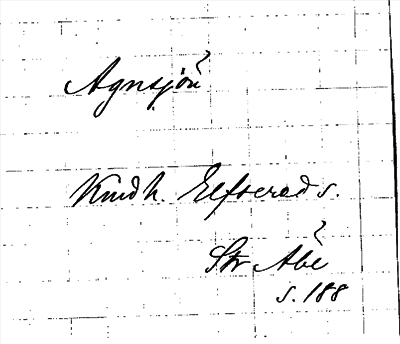 Agnsjön
Kind h. Elfsered s.
Str
s. 188